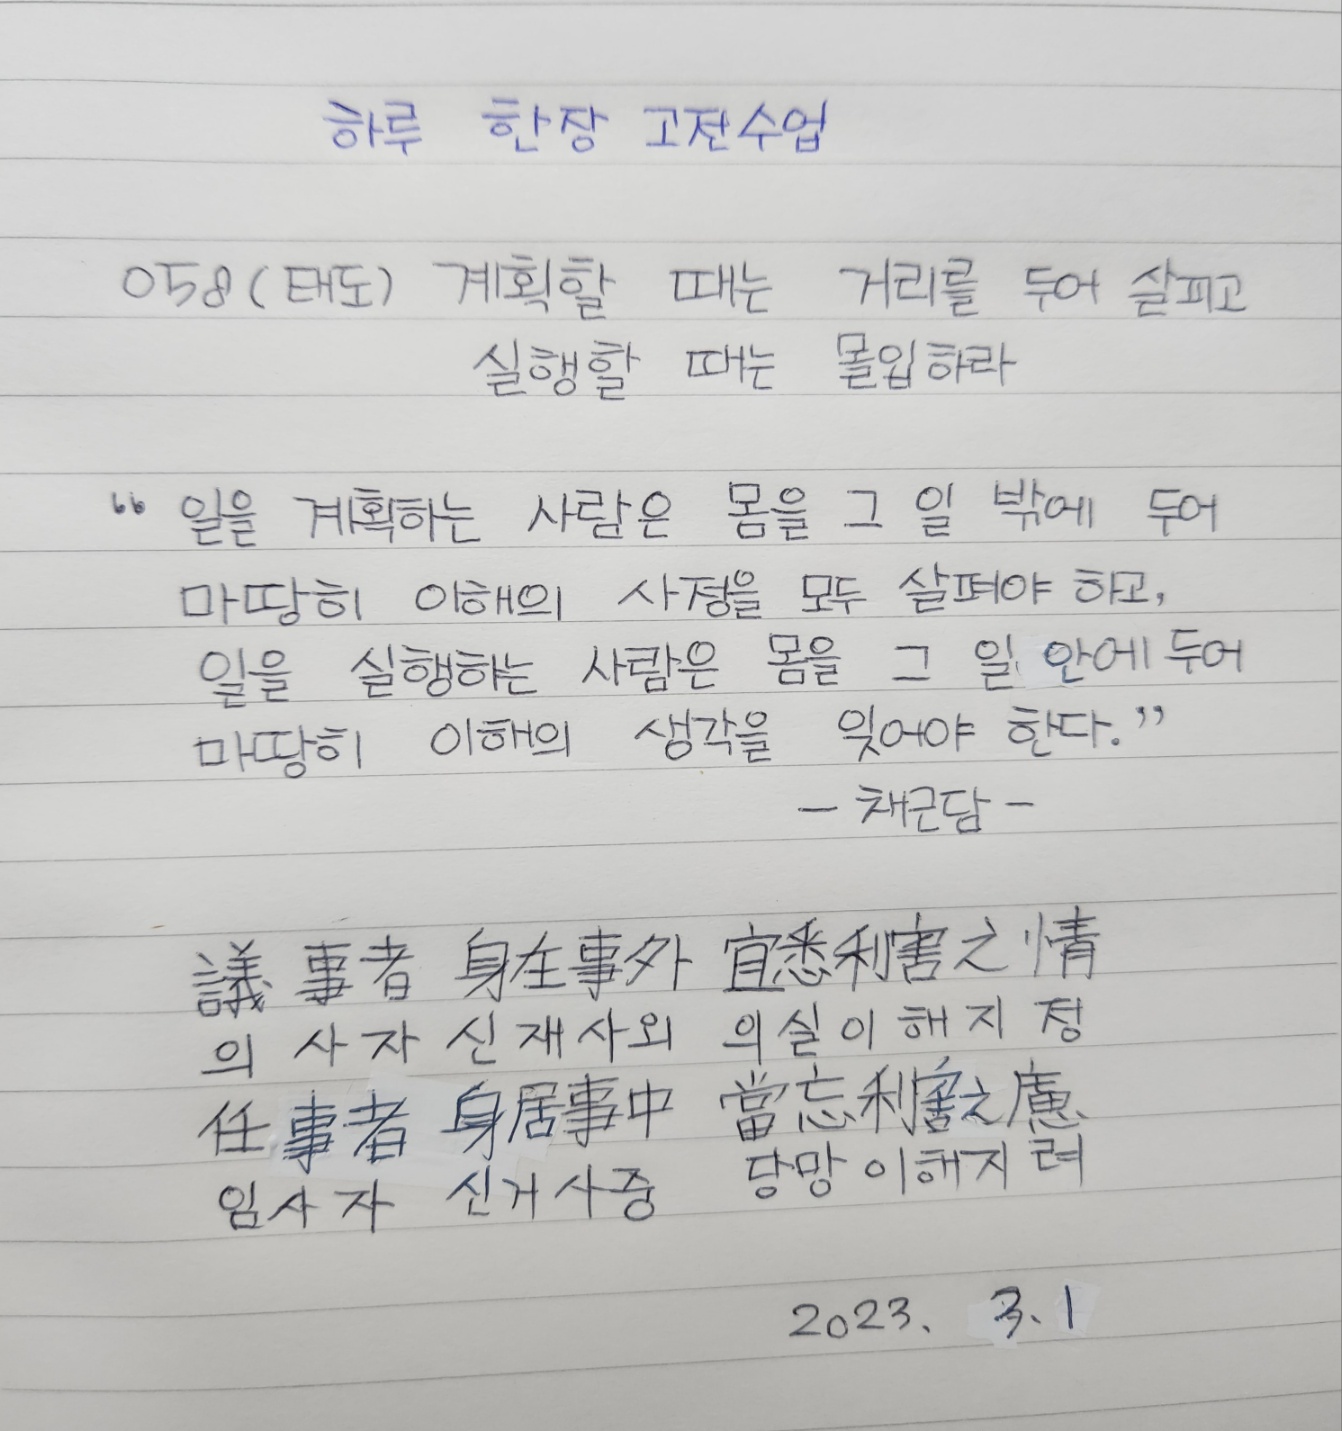 하루 한장 고전수업
058(태도) 계획할 때는 거리를 두어 살피고
실행할 때는 몰입하라
“일을 계획하는 사람은 몸을 그 일 밖에 두어
마땅히 이해의 사정을 모두 살펴야 하고,
일을 실행하는 사람은 몸을 그 일 안에 두어
마땅히 이해의 생각을 잊어야 한다.”
- 채근담 -
議事者 身在事外 宜悉利害之情
의사자 신재사외 의실이해지정
任事者 身居事中 當忘利害之慮
임사자 신거사중 당망이해지려
2023. 3. 1